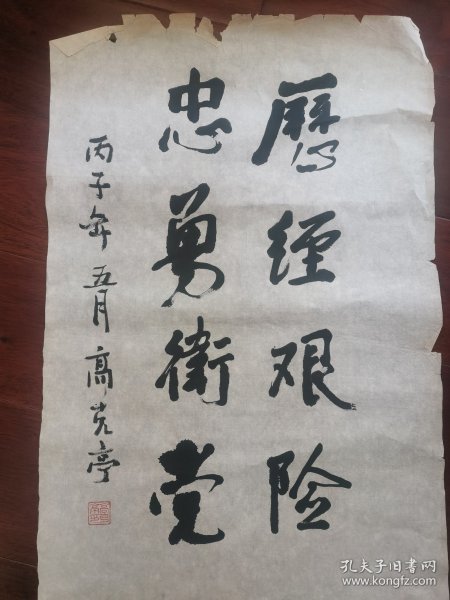 歷经艰险
忠勇衛党
丙子年五月高克亭
孔夫子旧书网
www.kongfz.com